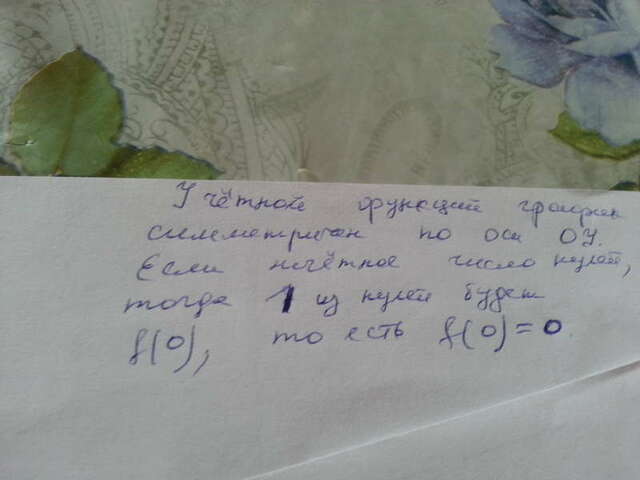 У чётной функций график
симметричен по оси OY.
Если нечётное число нулей,
тогда 1 из нулей будет
f(0), то есть f(0)=0.